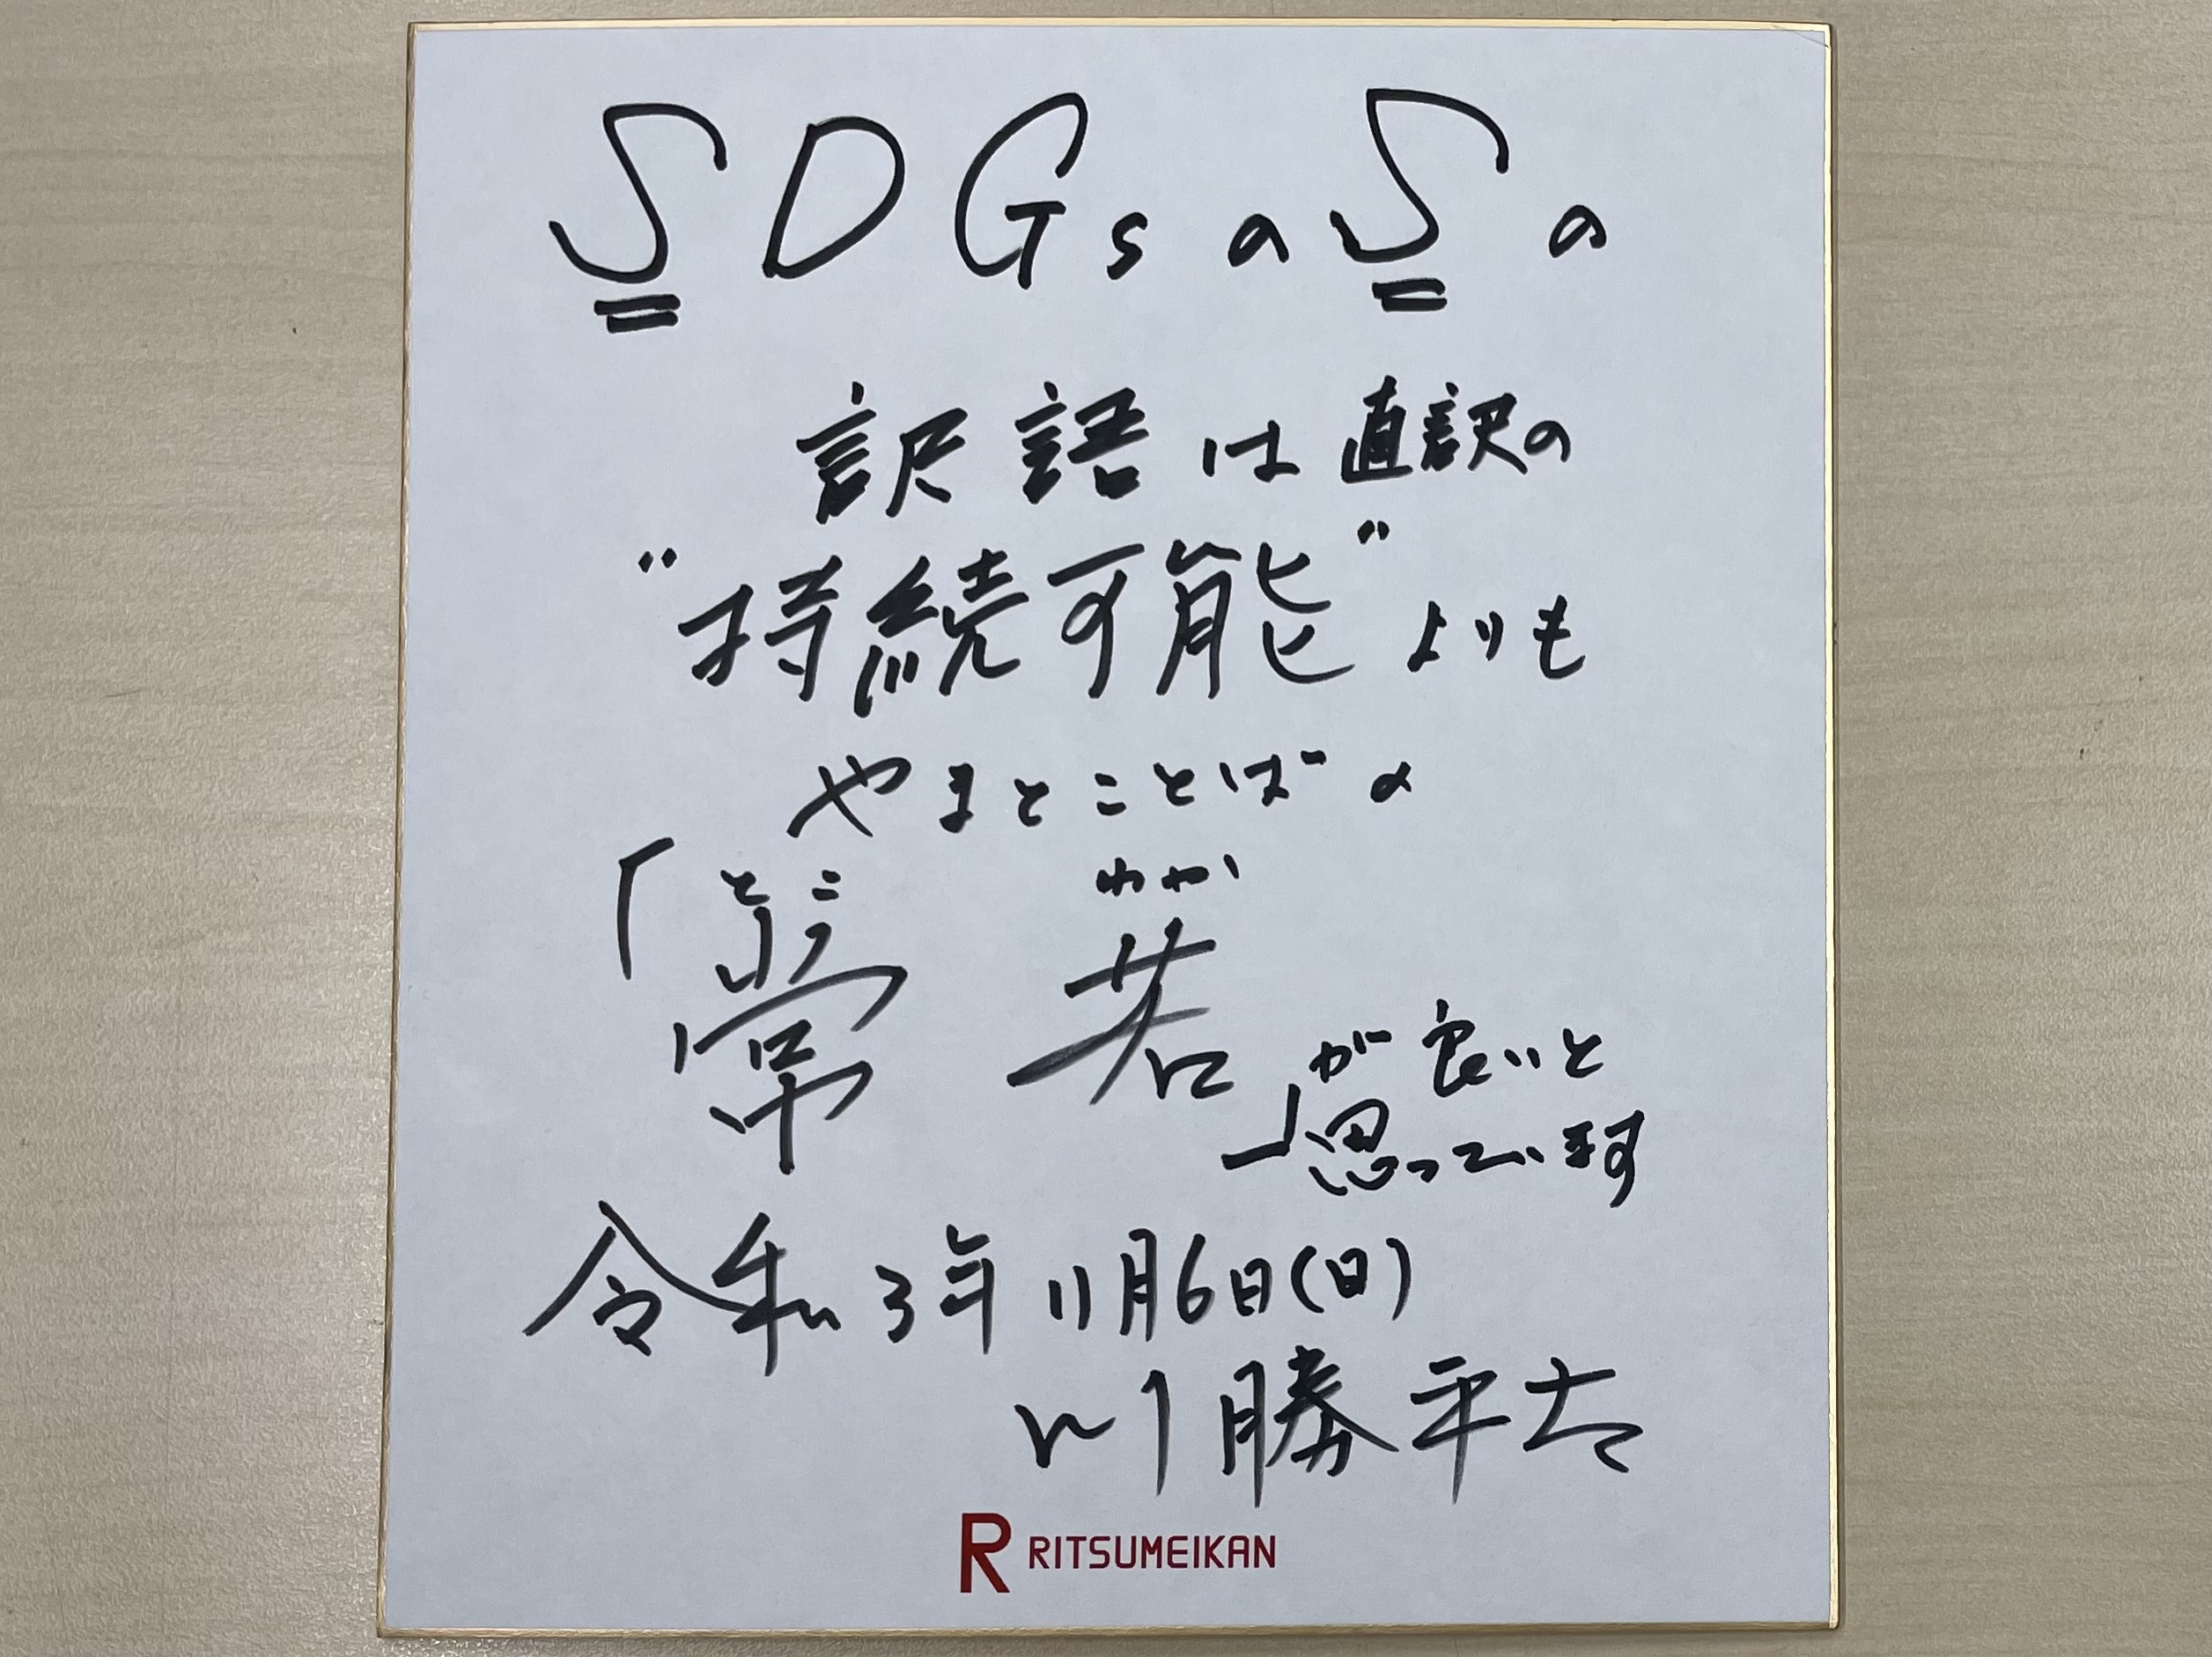 SDGsのSの
訳語は直訳の
"持続可能"よりも
やまとことばの
とこ わか
「常若」が良いと
思っています
令和3年11月6日(日)
川勝平太
R RITSUMEIKAN